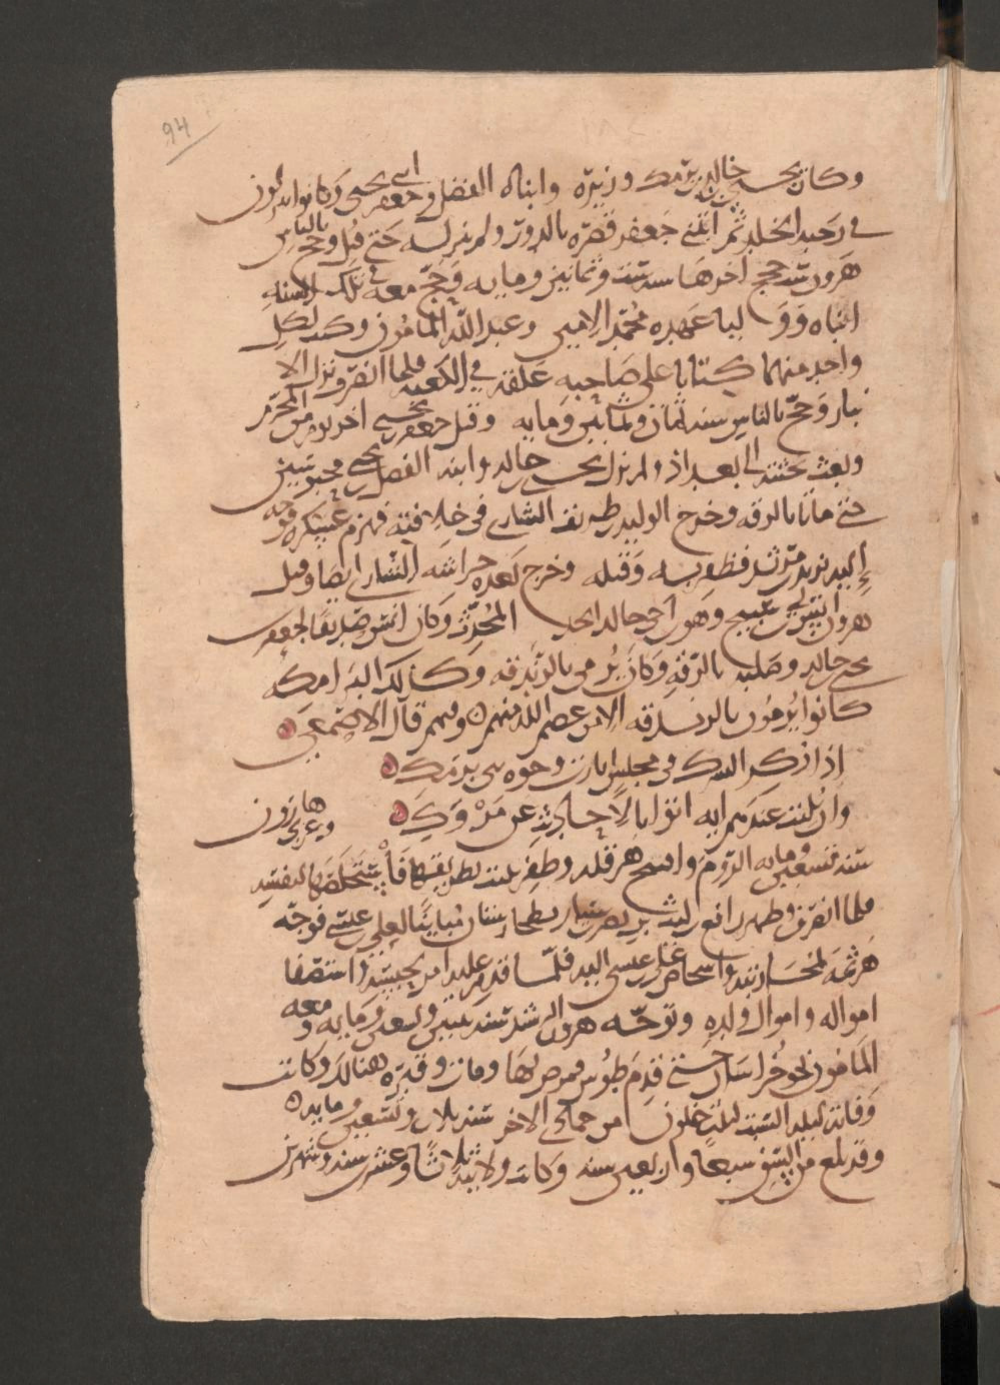 94
وكان يحيى بن خالد بن برمك وزيره وابناه الفضل وجعفر ابنى يحيى وكانوا ينزلون
في رحبه الخلد ثم ابتنى جعفر قصره بالدور ولم ينزله حتى قتل وحج بالناس
هرون ست حجج اخرها سنه ست وثمانين ومايه وحج معه في تلك السنه
ابناه ووليا عهده محمد الامين وعبد الله المامون وكتب لكل
واحد منهما كتابا على صاحبه علقه في الكعبه فلما انصرف نزل الا
نبار وحج بالناس سنه ثمان وثمانين ومايه وقتل جعفر بن يحيى اخر يوم من المحرم
وبعث بجثته الى بغداذ ولم يزل يحيى بن خالد وابنه الفضل بن يحيى محبوسين
حتى ماتا بالرقه وخرج الوليد بن طريف الشاري في خلافته فهزم عسكره فوجه
إليه يزيد بن مزيد فظفر به وقتله وخرج بعده خراشه الشاري ايضا وقتل
هرون انس بن ابي شيخ وهو ابن اخي خالد الحذا المحدث وكان انس صديقا لجعفر بن
يحيى بن خالد وصلبه بالرقه وكان يرمى بالزندقه وكذلك البرامكه
كانوا يرمون بالزندقه الا من عصم الله منهم وفيهم قال الاصمعي
إذا ذكر الشرك في مجلس انارت وجوه بني برمك
وان تليت عندهم ايه اتوا بالاحاديث عن مَزْدَك وغزا هارون
سنه تسعين ومايه الروم وافتتح هرقله وظفر ببنت بطريقها فاستخلصها لنفسه
فلما انصرف وظهر رافع بن ليث بن نصر بن سيار بطخارستان مباينا لعلي بن عيسى فوجه
هرثمه لمحاربته واشخاص علي بن عيسى اليه فلما قدم عليه امر بحبسه واستصفا
امواله واموال ولده وتوجه هرون الرشيد سنه اثنتين وتسعين ومايه ومعه
المامون نحو خراسان حتى قدم طوس فمرض بها ومات وقبره هنالك وكانت
وفاته ليله السبت لثلث خلون من جمادى الاخر سنه ثلاث وتسعين ومايه
وقد بلغ من السن سبعا واربعين سنه وكانت ولايته ثلاثا وعشرين سنه وشهرين